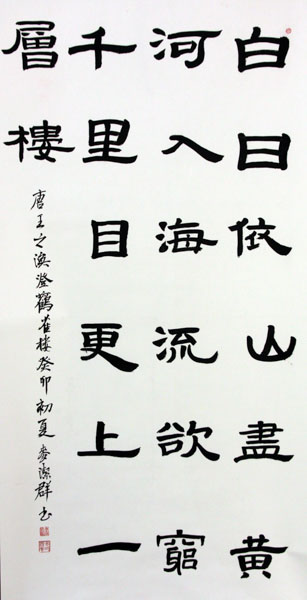 白日依山盡黃
河入海流欲窮
千里目更上一
層樓
唐王之渙澄鶴雀樓癸卯初夏麥潔群书